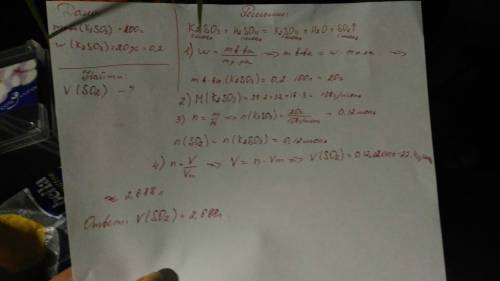 Дано:
m р-ра (K2SO3) = 100г
w (K2SO3) = 20% = 0,2
Найти:
V (SO2) - ?
Решение:
K2SO3 + H2SO4 = K2SO4 + H2O + SO2↑
1) w = m в-ва / m р-ра => m в-ва = w · m р-ра =>
m в-ва (K2SO3) = 0,2 · 100г = 20г
2) M (K2SO3) = 39·2+32+16·3 = 158г/моль
3) n = m/M => n (K2SO3) = 20г / 158г/моль = 0,12моль
n (SO2) = n (K2SO3) = 0,12моль
4) n = V/Vm => V = n · Vm => V (SO2) = 0,12моль · 22,4л/моль
≈ 2,688л
Ответ: V (SO2) = 2,688л